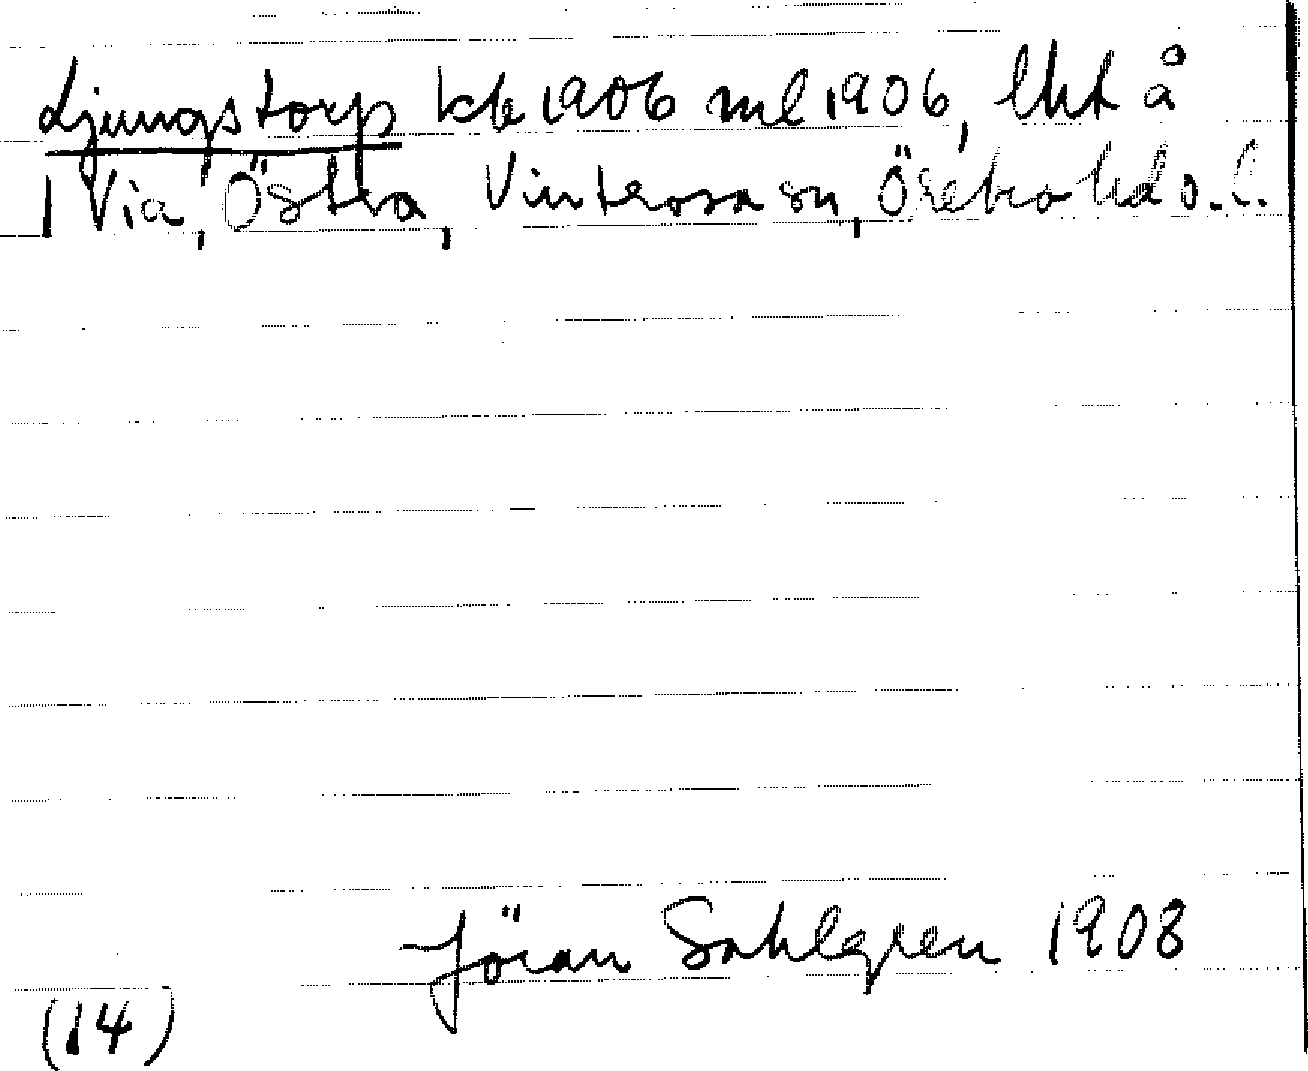 Ljungstorp kb 1906 ml 1906, lht å
1 Via, Östra, Vintrosa sn, Örebro hd o. l.
Jöran Sahlgren 1908
(14)